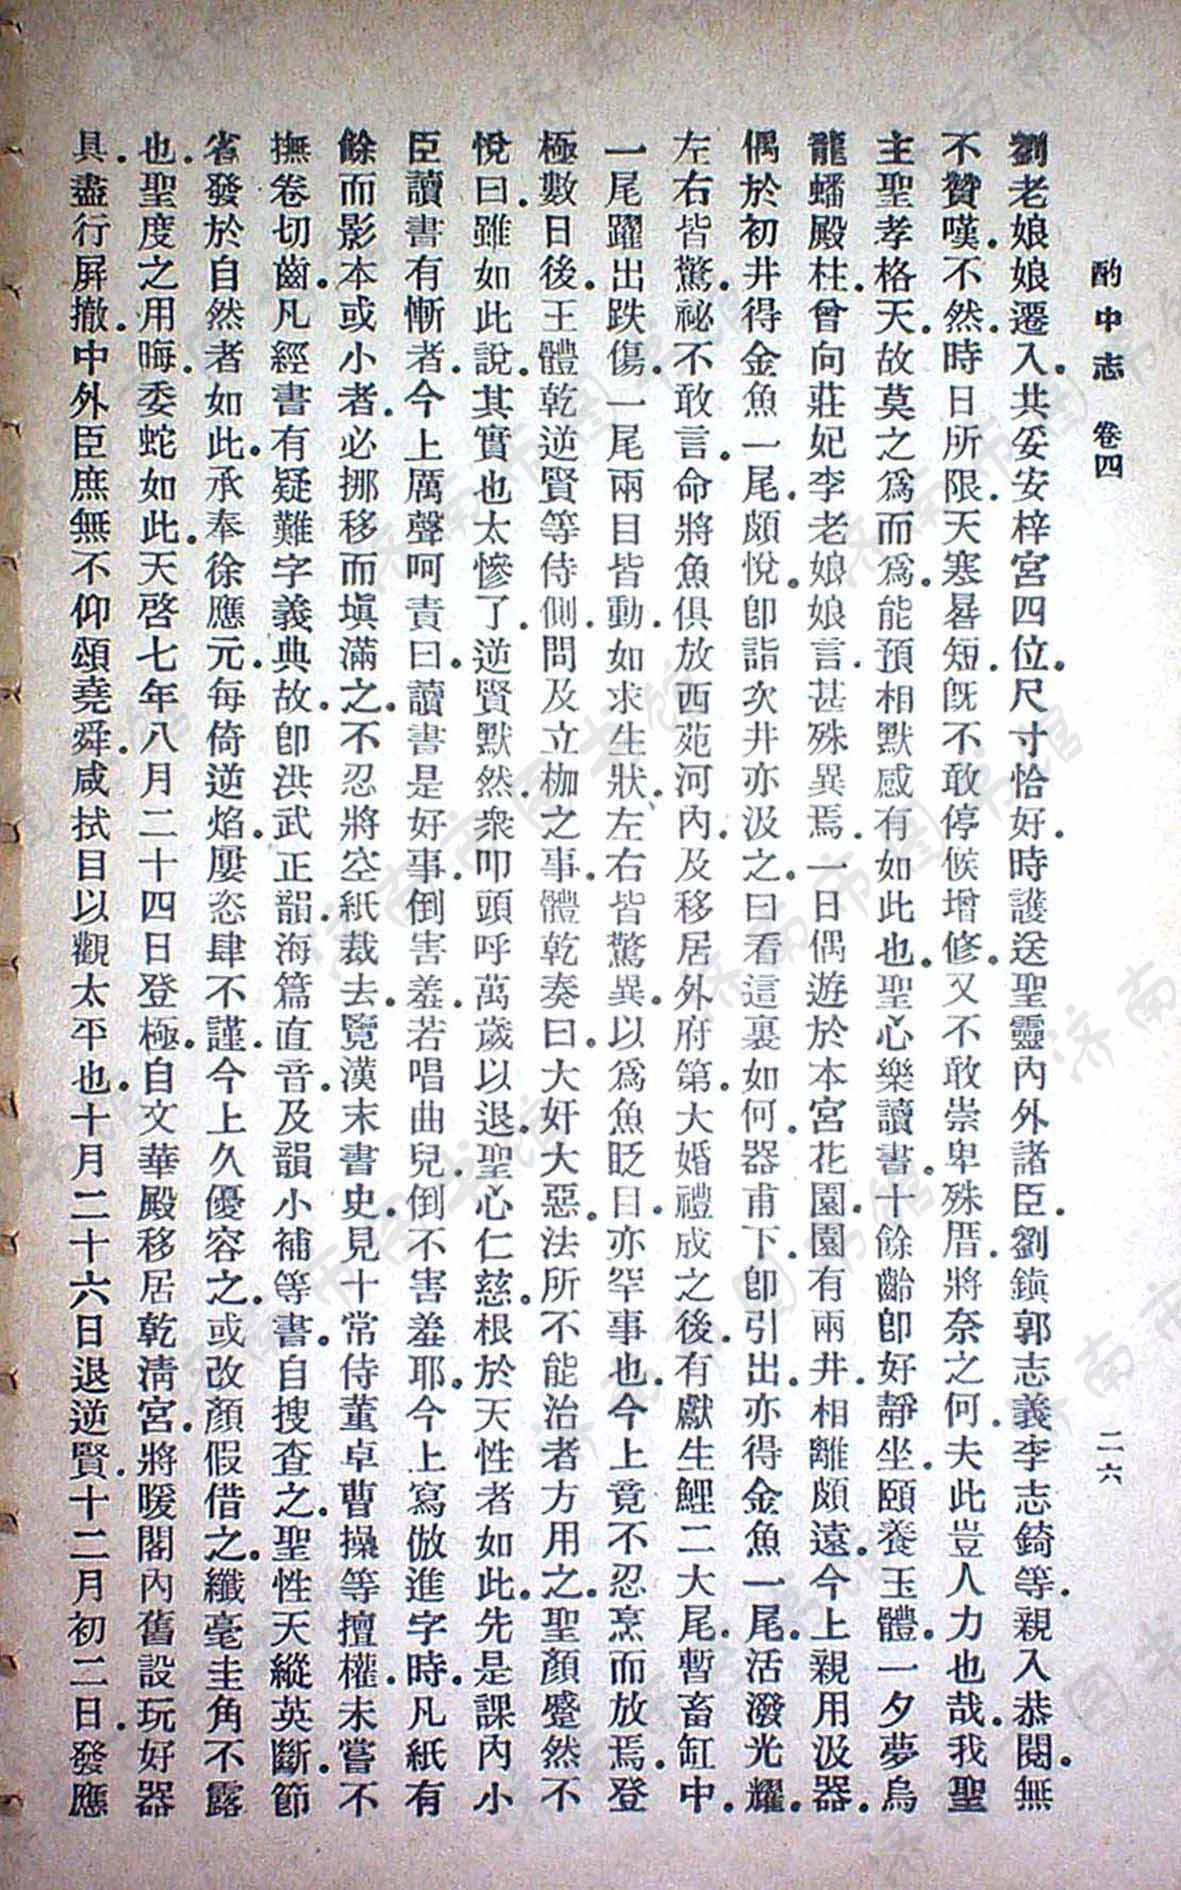 酌中志 卷四 二六
劉老娘娘遷入。共妥安梓宮四位。尺寸恰好。時護送聖靈內外諸臣。劉鎮郭志義李志錡等。親入恭閱。無
不贊嘆。不然。時日所限。天寒晷短。旣不敢停候增修。又不敢崇卑殊厝。將奈之何。夫此豈人力也哉。我聖
主聖孝格天。故莫之爲而爲。能預相默感。有如此也。聖心樂讀書。十餘齡卽好靜坐。頤養玉體。一夕夢烏
龍蟠殿柱。曾向莊妃李老娘娘言。甚殊異焉。一日偶遊於本宮花園。園有兩井。相離頗遠。今上親用汲器。
偶於初井得金魚一尾。頗悅。卽詣次井亦汲之。曰看這裏如何。器甫下。卽引出。亦得金魚一尾。活潑光耀。
左右皆驚。祕不敢言。命將魚俱放西苑河內。及移居外府第。大婚禮成之後。有獻生鯉二大尾。暫畜缸中。
一尾躍出跌傷。一尾兩目皆動。如求生狀。左右皆驚異。以爲魚眨目。亦罕事也。今上竟不忍烹而放焉。登
極數日後。王體乾逆賢等侍側。問及立枷之事。體乾奏曰。大奸大惡。法所不能治者方用之。聖顏蹙然不
悅曰。雖如此說。其實也太慘了。逆賢默然。衆叩頭呼萬歲以退。聖心仁慈。根於天性者如此。先是課內小
臣讀書有慚者。今上厲聲呵責曰。讀書是好事。倒害羞。若唱曲兒。倒不害羞耶。今上寫倣進字時。凡紙有
餘而影本或小者。必挪移而塡滿之。不忍將空紙裁去。覽漢末書史。見十常侍董卓曹操等擅權。未嘗不
撫卷切齒。凡經書有疑難字義典故。卽洪武正韻。海篇直音。及韻小補等書。自搜查之。聖性天縱英斷。節
省發於自然者如此。承奉徐應元。每倚逆焰。屢恣肆不謹。今上久優容之。或改顏假借之。纖毫圭角不露
也。聖度之用晦。委蛇如此。天啓七年八月二十四日登極。自文華殿移居乾淸宮。將暖閣內舊設玩好器
具。盡行屏撤。中外臣庶無不仰頌堯舜。咸拭目以觀太平也。十月二十六日退逆賢。十二月初二日。發應